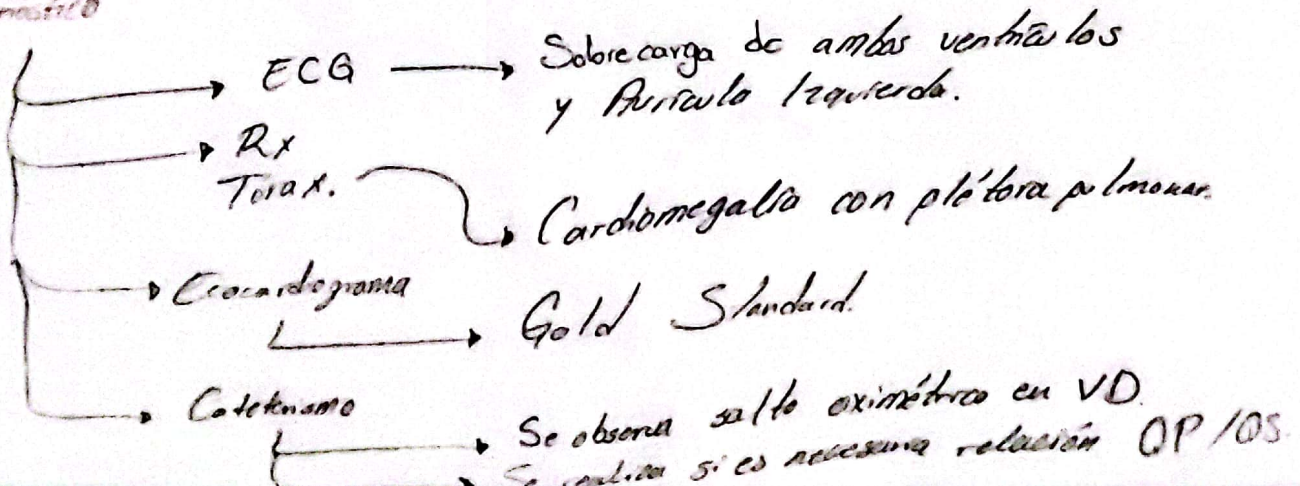 ECG → Sobrecarga de ambos ventrículos
y Aurícula Izquierda.
Rx
Torax.
Cardiomegalia con plétora pulmonar.
Ecocardiograma
Gold Standard.
Cateterismo
Se observa salto oximétrico en VD.
Se realiza si es necesaria relación QP/QS.